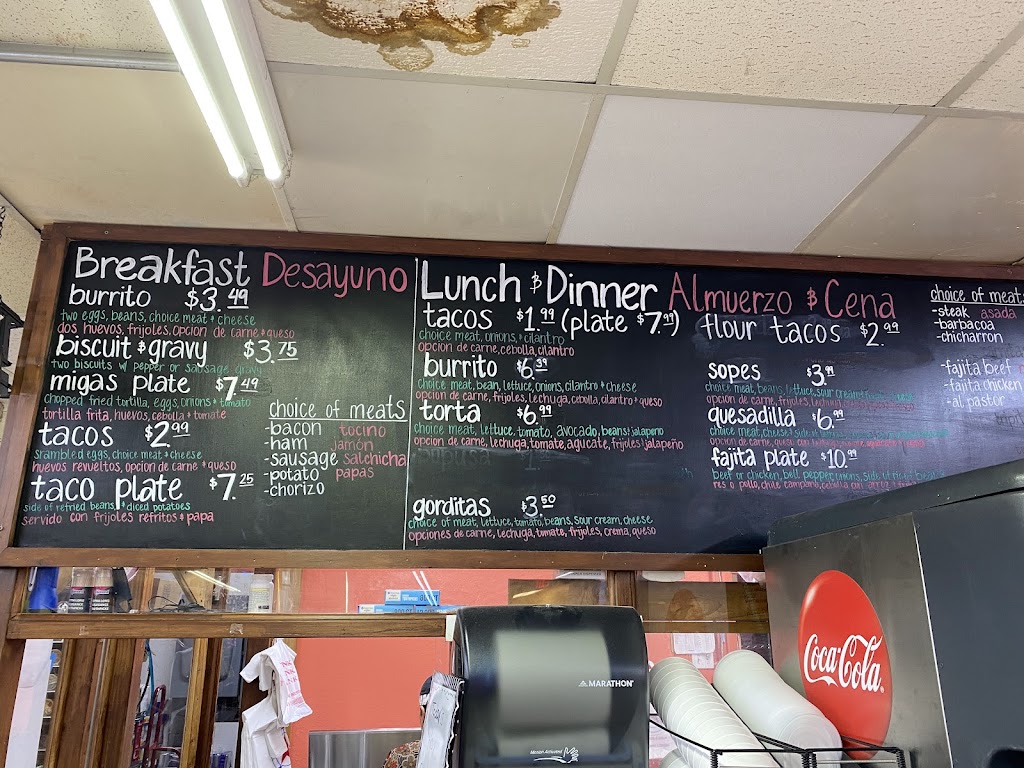 Breakfast Desayuno
burrito $3.49
two eggs, beans, choice meat & cheese
dos huevos, frijoles, opcion de carne & queso
biscuit & gravy $3.75
two biscuits w/ pepper or sausage gravy
migas plate $7.49
chopped fried tortilla, eggs, onions & tomato
tortilla frita, huevos, cebolla & tomate
tacos $2.99
srambled eggs, choice meat & cheese
huevos revueltos, opcion de carne & queso
taco plate $7.25
side of refried beans & diced potatoes
servido con frijoles refritos & papa
choice of meats
-bacon tocino
-ham jamón
-sausage salchicha
-potato papas
-chorizo
Lunch & Dinner Almuerzo & Cena
tacos $1.99 (plate $7.99)
choice meat, onions, & cilantro
opcion de carne, cebolla, cilantro
burrito $6.39
choice meat, bean, lettuce, onions, cilantro & cheese
opcion de carne, frijoles, lechuga, cebolla, cilantro & queso
torta $6.99
choice meat, lettuce, tomato, avocado, beans & jalapeno
opcion de carne, lechuga, tomate, agucate, frijoles & jalapeño
gorditas $3.50
choice of meat, lettuce, tomato, beans, sour cream, cheese
opciones de carne, lechuga, tomate, frijoles, crema, queso
flour tacos $2.99
sopes $3.99
choice meat, beans, lettuce, sour cream
opcion de carne, frijoles, lechuga
quesadilla $6.99
choice meat, cheese & side
opcion de carne, queso
fajita plate $10.99
beef or chicken, bell pepper, onions, side of rice &
res o pollo, chile campana, cebolla con arroz
choice of meats
-steak asada
-barbacoa
-chicharron
-fajita beef
-fajita chicken
-al pastor
MARATHON
Coca-Cola